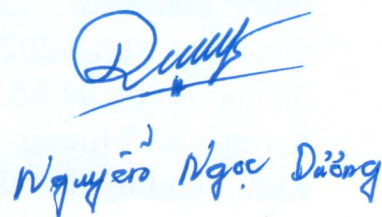 Nguyễn Ngọc Dưỡng